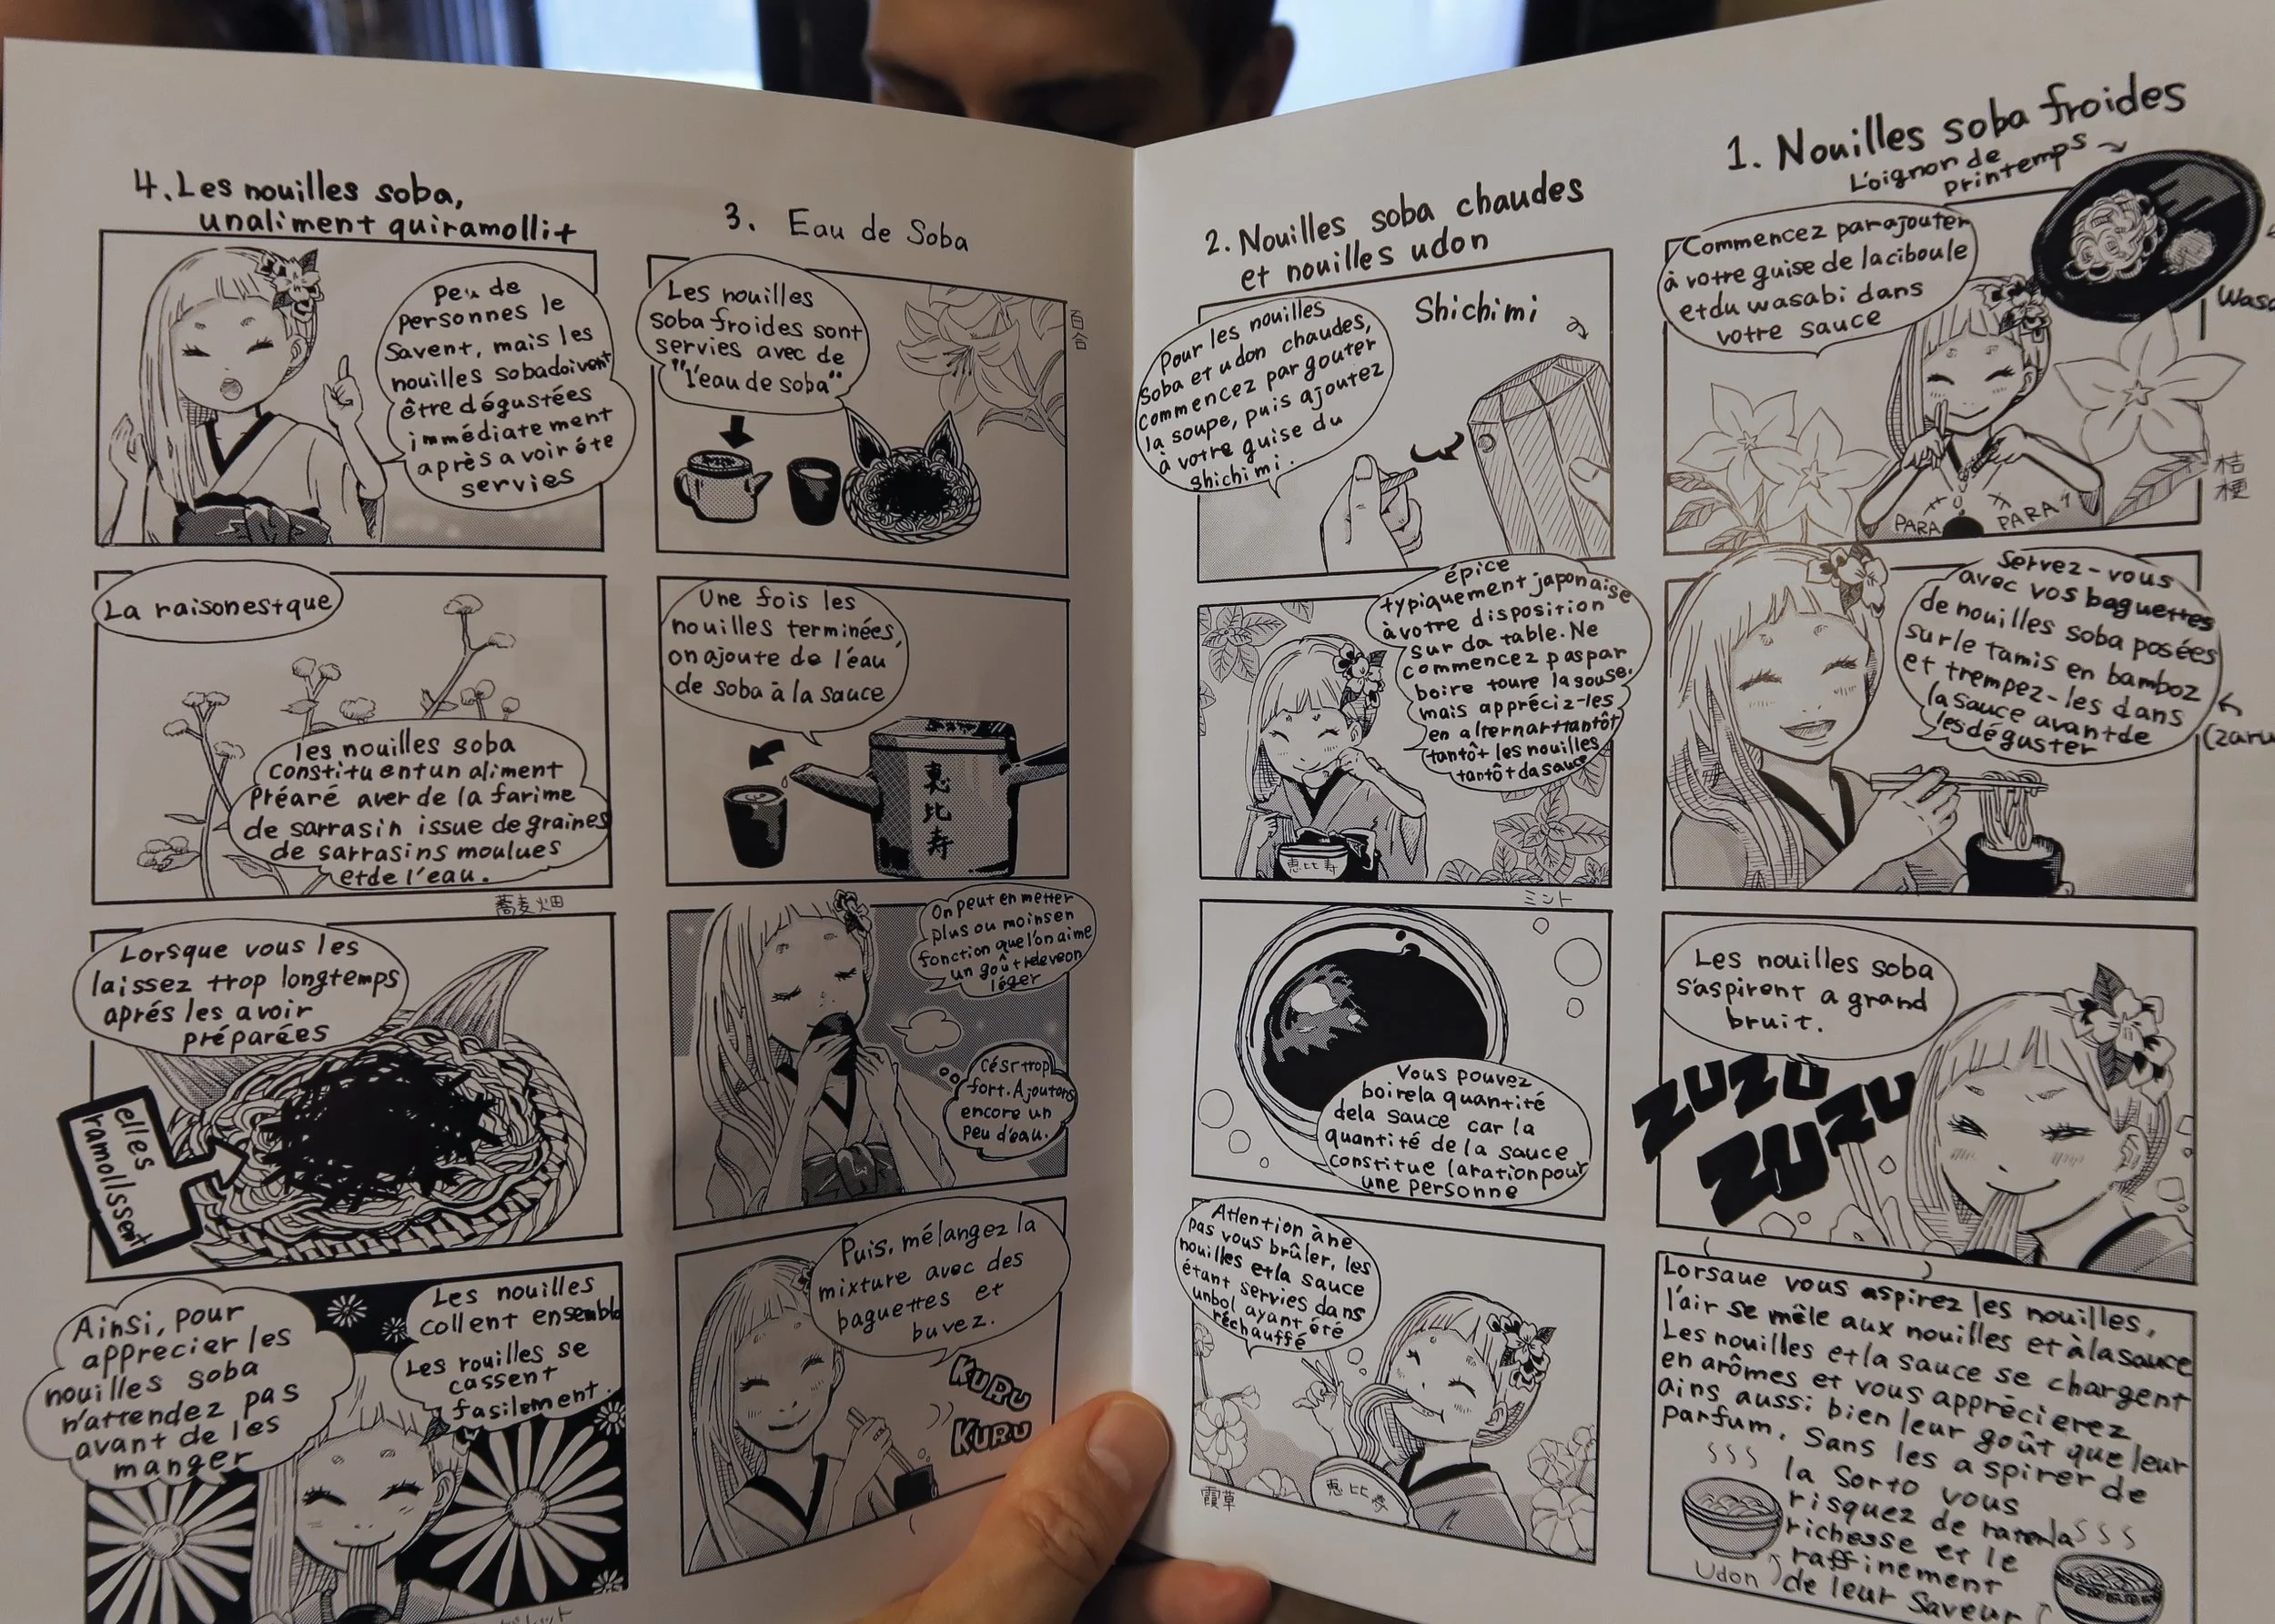 1. Nouilles soba froides
L'oignon de
printemps
Commencez par ajouter
à votre guise de la ciboule
et du wasabi dans
votre sauce
桔
梗
PARA
PARA
Servez-vous
avec vos baguettes
de nouilles soba posées
sur le tamis en bamboz
et trempez-les dans
la sauce avant de
les déguster
Les nouilles soba
s'aspirent a grand
bruit.
ZUZU
ZUZU
Lorsaue vous aspirez les nouilles,
l'air se mêle aux nouilles et à la sauce
Les nouilles et la sauce se chargent
en arômes et vous apprécierez
ains aussi bien leur goût que leur
parfum. Sans les aspirer de
la Sorto vous
risquez de
richesse et le
raffinement
de leur Saveur
Udon
2. Nouilles soba chaudes
et nouilles udon
Pour les nouilles
Soba et udon chaudes,
commencez par gouter
la soupe, puis ajoutez
à votre guise du
shichimi.
Shichimi
épice
typiquement japonaise
à votre disposition
sur da table. Ne
commencez pas par
boire toure la souse.
mais appréciz-les
en alternart tantôt
tantôt les nouilles
tantôt da sauce
恵比寿
ミント
Vous pouvez
boire la quantité
de la sauce car la
quantité de la sauce
constitue la ration pour
une personne
Attention à ne
pas vous brûler, les
nouilles et la sauce
étant servies dans
un bol ayant été
réchauffé
恵比寿
霞草
3. Eau de Soba
Les nouilles
soba froides sont
servies avec de
"l'eau de soba"
百合
Une fois les
nouilles terminées,
on ajoute de l'eau
de soba à la sauce
恵
比
寿
On peut en metter
plus ou moins en
fonction que l'on aime
un goût releveon
léger
Césr trop
fort. Ajoutons
encore un
peu d'eau.
Puis, mélangez la
mixture avec des
baguettes et
buvez.
KURU
KURU
4. Les nouilles soba,
un aliment qui ramollit
Peu de
personnes le
savent, mais les
nouilles soba doivent
être dégustées
immédiatement
après avoir éte
servies
La raison est que
les nouilles soba
constituent un aliment
Préaré aver de la farime
de sarrasin issue de graines
de sarrasins moulues
et de l'eau.
蕎麦畑
Lorsque vous les
laissez trop longtemps
aprés les avoir
préparées
elles
ramolissent
Les nouilles
collent ensemble
Les rouilles se
cassent
fasilement.
Ainsi, pour
apprecier les
nouilles soba
n'attendez pas
avant de les
manger